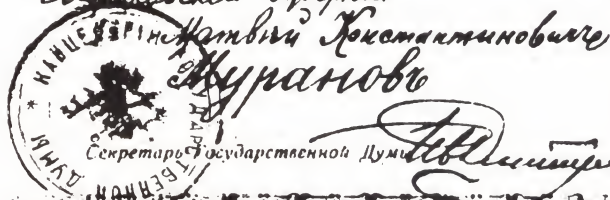 Матвѣй Константиновичъ
Мурановъ
КАНЦЕЛЯРІЯ ГОСУДАРСТВЕННОЙ ДУМЫ
Секретарь Государственной Думы